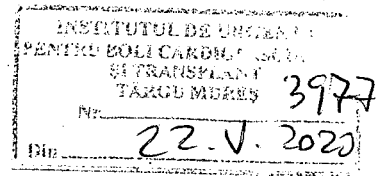 INSTITUTUL DE URGENȚĂ
PENTRU BOLI CARDIOVASCULARE
ȘI TRANSPLANT
TÂRGU MUREȘ
Nr. 3977
Din 22.V.2020